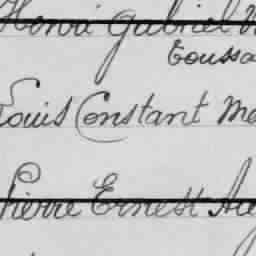 Hervé Gabriel
Toussa
Louis Constant Me
Pierre Ernest